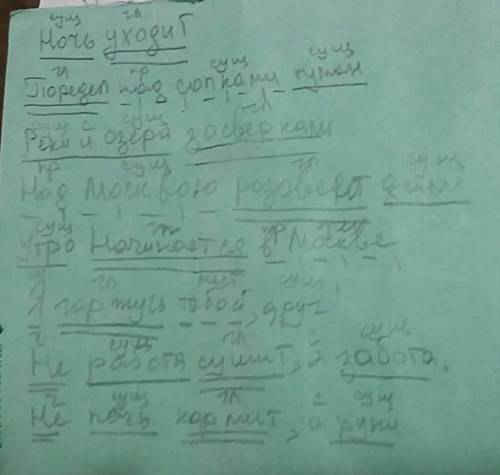 сущ гл
Ночь уходит
гл пр сущ сущ
Поредел над сопками туман
сущ с сущ гл
Реки и озёра засверкали
пр сущ гл сущ
Над Москвою розовеет
сущ гл пр сущ
Утро Начинается в Москве
гл мест сущ
Я горжусь тобой, друг!
ч сущ гл с сущ
Не работа сушит, а забота.
ч сущ гл с сущ
Не печь кормит, а руки